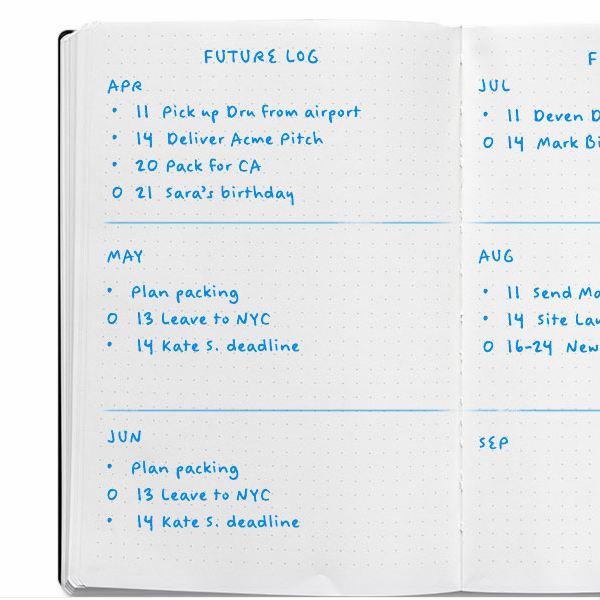 FUTURE LOG
APR
• 11 Pick up Dru from airport
• 14 Deliver Acme Pitch
• 20 Pack for CA
O 21 Sara's birthday
MAY
• Plan packing
O 13 Leave to NYC
• 14 Kate S. deadline
JUN
• Plan packing
O 13 Leave to NYC
• 14 Kate S. deadline
JUL
• 11 Deven
O 14 Mark
AUG
• 11 Send
• 14 Site
O 16-24 New
SEP